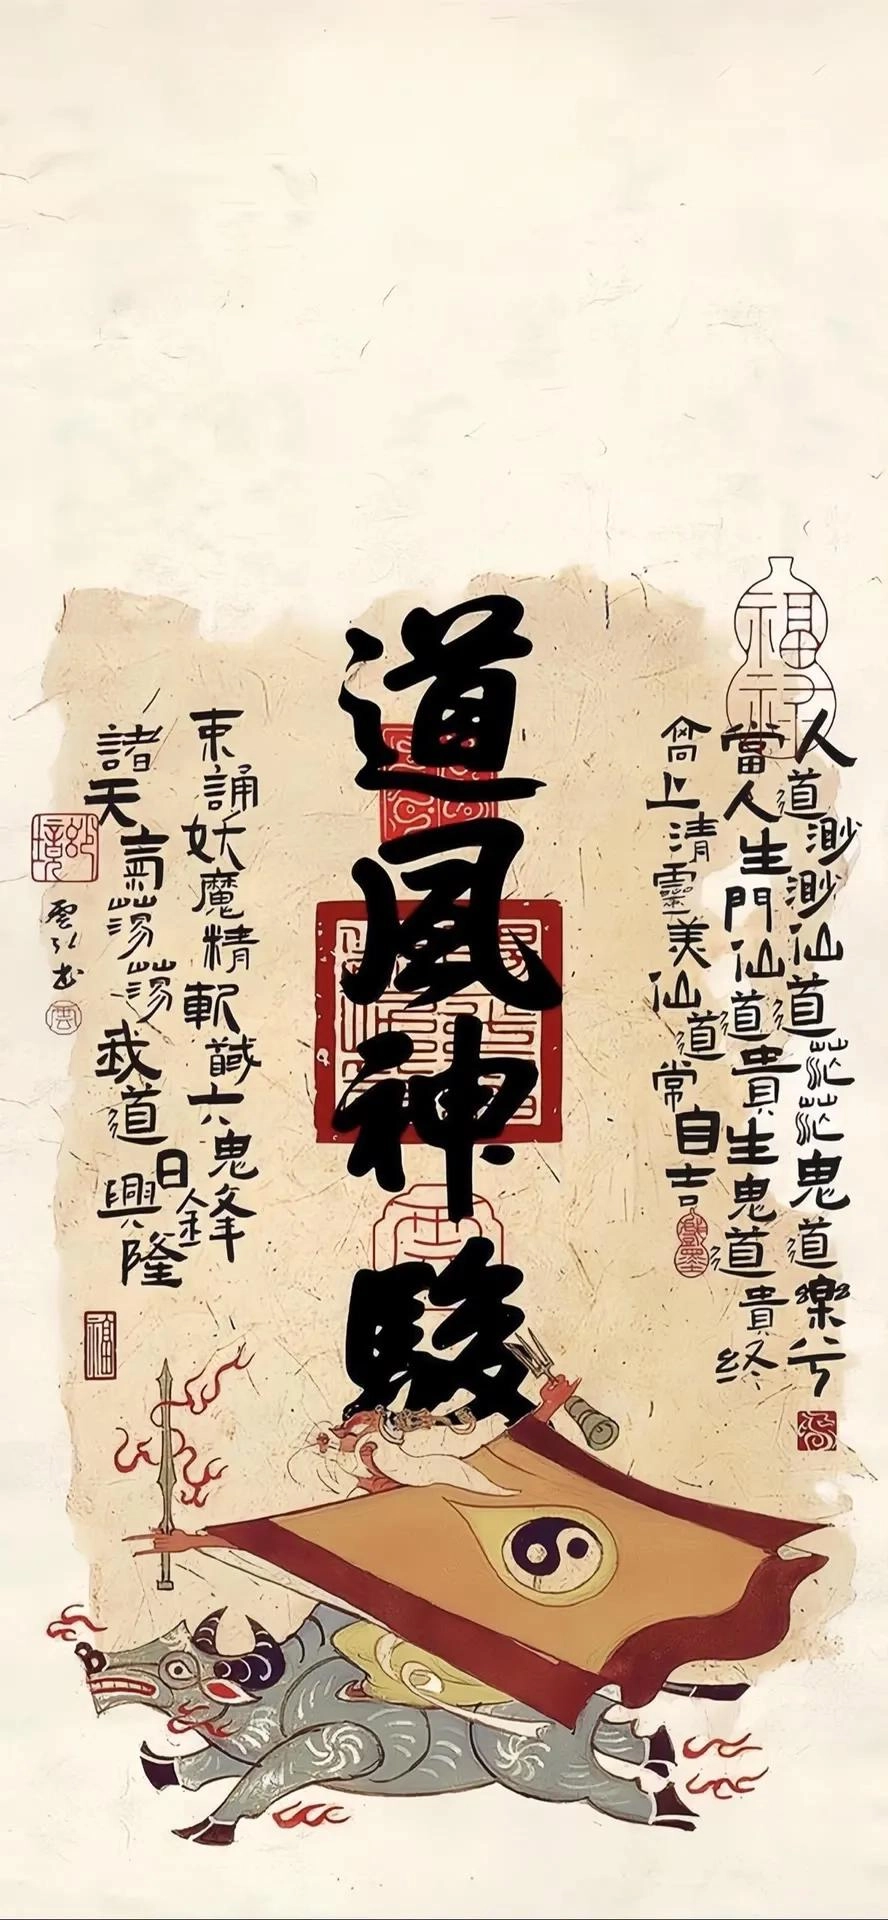 福祿
人道渺渺仙道茫茫鬼道樂兮
當人生門仙道貴生鬼道貴終
高上清靈美仙道常自吉
道風神駿
束誦妖魔精斬馘六鬼鋒
諸天氣蕩蕩我道日興隆
福